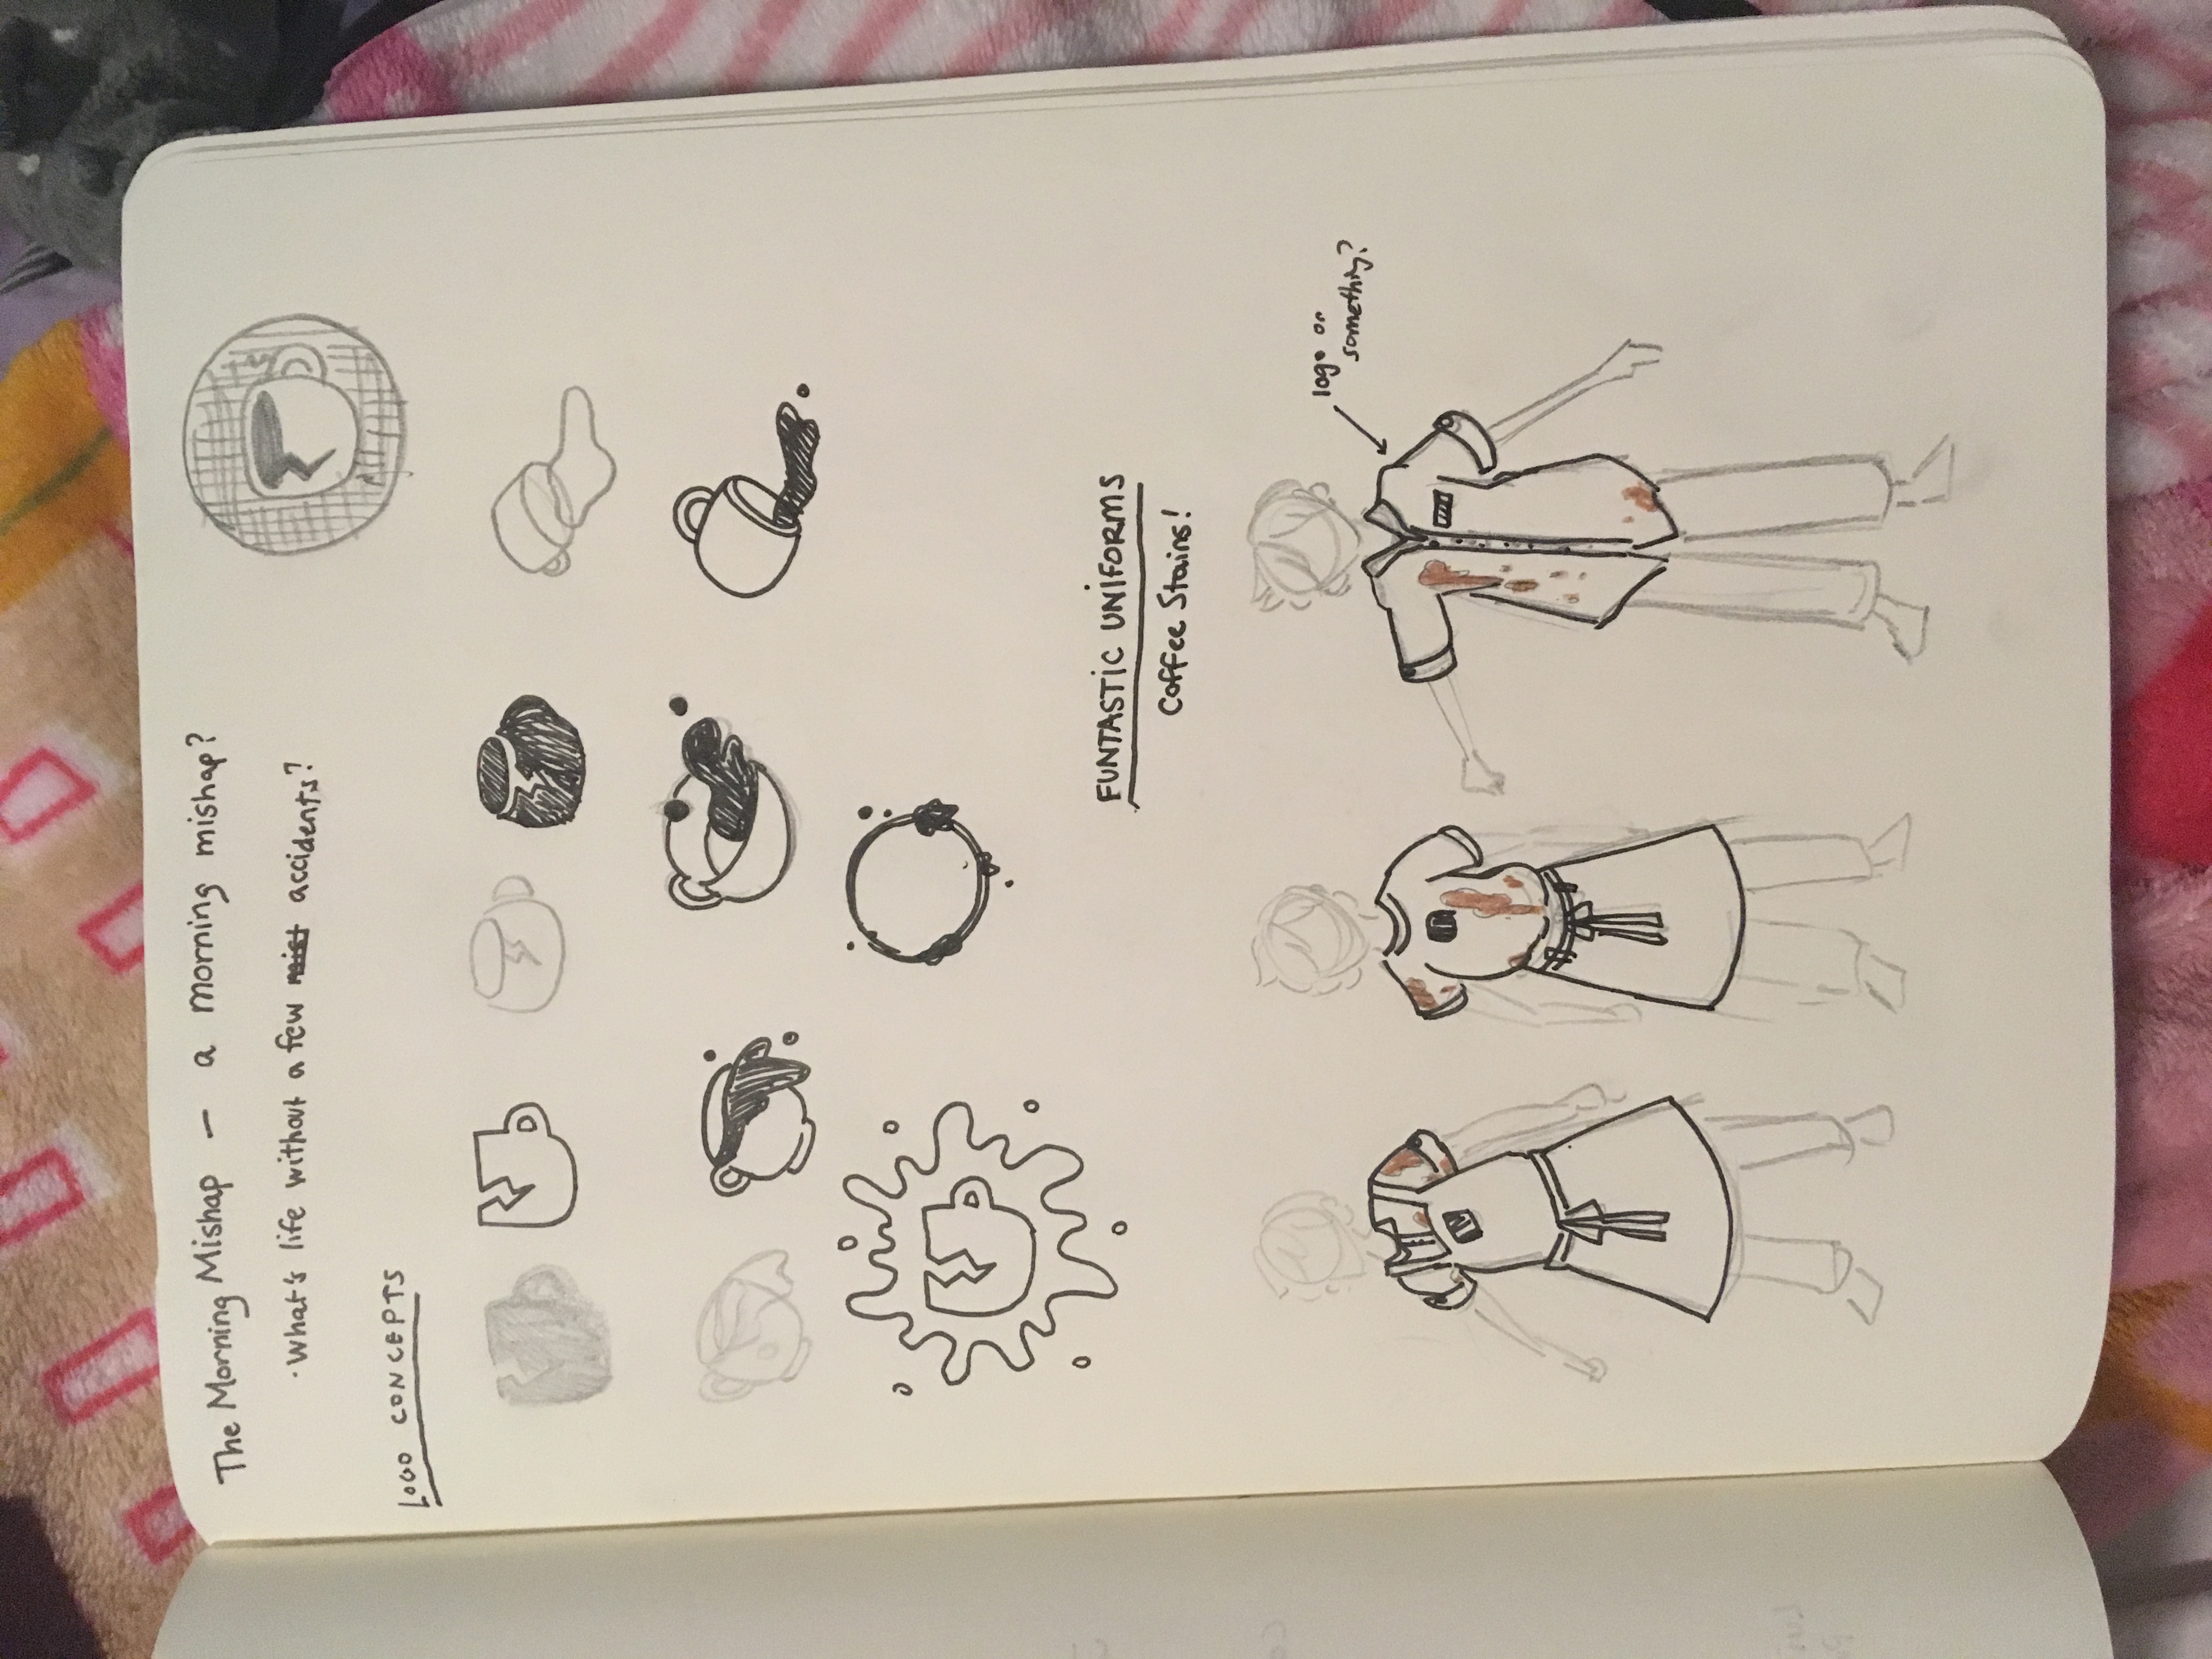 The Morning Mishap — a morning mishap?
·What's life without a few mist accidents?
LOGO CONCEPTS
FUNTASTIC UNIFORMS
Coffee Stains!
logo or
something?